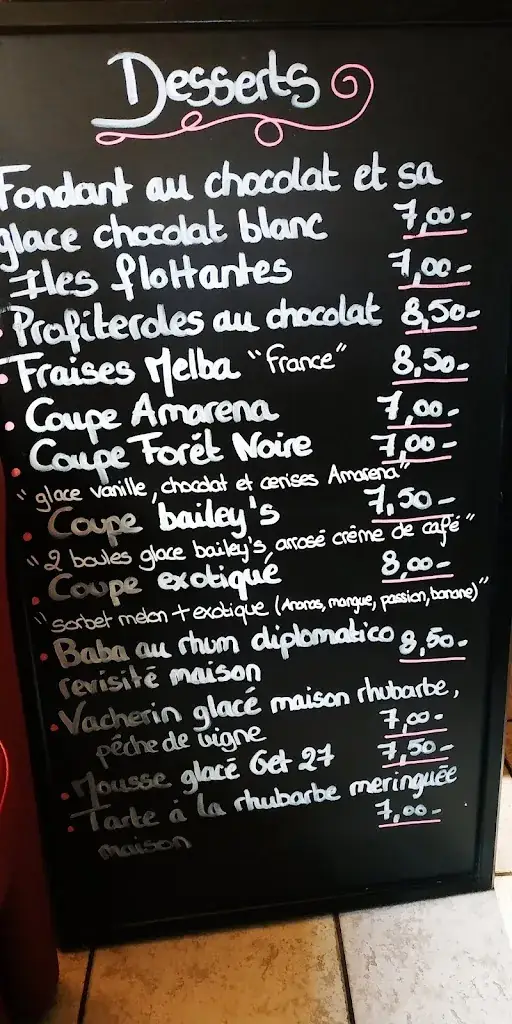 Desserts
Fondant au chocolat et sa
glace chocolat blanc 7,00-
Iles flottantes 7,00-
• Profiteroles au chocolat 8,50-
• Fraises Melba "France" 8,50-
• Coupe Amarena 7,00-
• Coupe Forêt Noire 7,00-
"glace vanille, chocolat et cerises Amarena"
• Coupe bailey's 7,50-
"2 boules glace bailey's, arrosé crème de café"
• Coupe exotique 8,00-
"sorbet melon + exotique (Ananas, mangue, passion, banane)"
• Baba au rhum diplomatico 8,50-
revisité maison
• Vacherin glacé maison rhubarbe,
pêche de vigne 7,00-
• Mousse glacé Get 27 7,50-
• Tarte à la rhubarbe meringuée
maison 7,00-